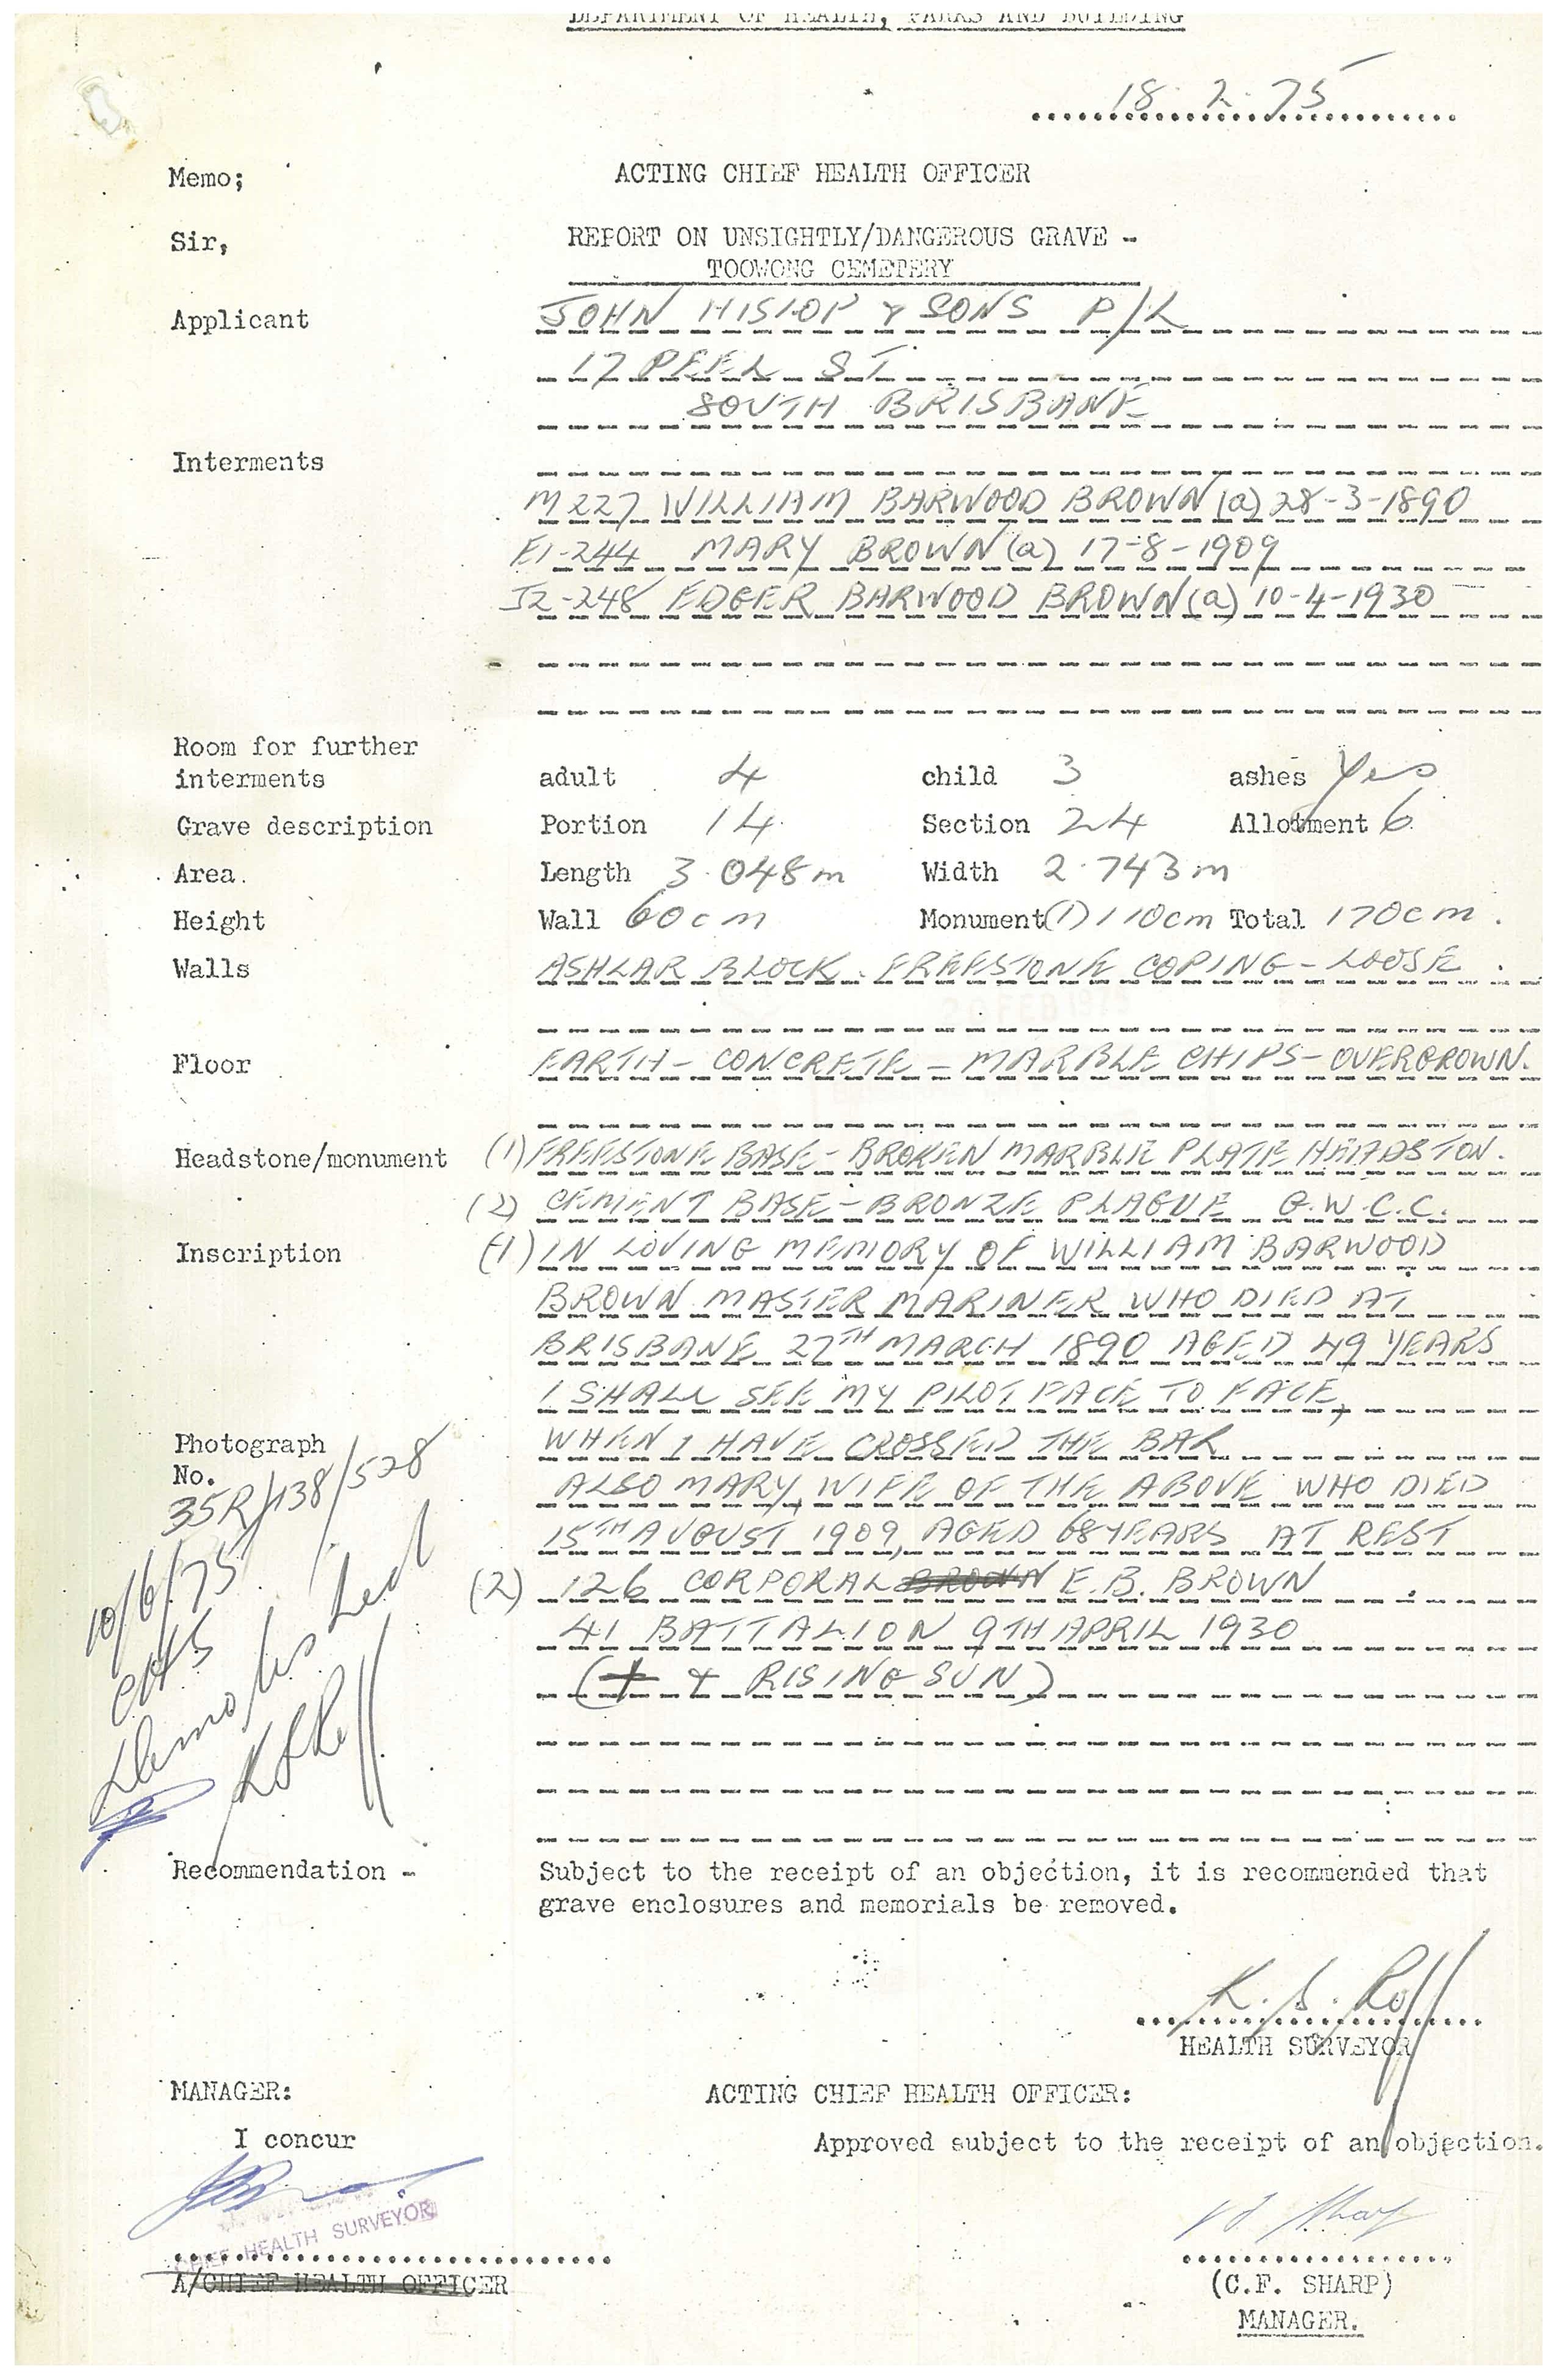 DEPARTMENT OF HEALTH, PARKS AND BUILDING
18.2.75
Memo; ACTING CHIEF HEALTH OFFICER
Sir, REPORT ON UNSIGHTLY/DANGEROUS GRAVE -
TOOWONG CEMETERY
Applicant JOHN HISLOP & SONS P/L
17 PEEL ST
SOUTH BRISBANE
Interments
M227 WILLIAM BARWOOD BROWN (a) 28-3-1890
E1-244 MARY BROWN (a) 17-8-1909
J2-248 EDGER BARWOOD BROWN (a) 10-4-1930
Room for further
interments adult 4 child 3 ashes Yes
Grave description Portion 14 Section 24 Allotment 6
Area. Length 3.048m Width 2.743m
Height Wall 60cm Monument (1) 110cm Total 170cm.
Walls ASHLAR BLOCK - FREESTONE COPING - LOOSE.
20 FEB 1975
Floor EARTH - CONCRETE - MARBLE CHIPS - OVERGROWN.
Headstone/monument (1) FREESTONE BASE - BROKEN MARBLE PLATE HEADSTON.
(2) CEMENT BASE - BRONZE PLAGUE G.W.C.C.
Inscription (1) IN LOVING MEMORY OF WILLIAM BARWOOD
BROWN MASTER MARINER WHO DIED AT
BRISBANE 27TH MARCH 1890 AGED 49 YEARS
I SHALL SEE MY PILOT FACE TO FACE,
Photograph WHEN I HAVE CROSSED THE BAR
No. ALSO MARY, WIFE OF THE ABOVE WHO DIED
35R/138/528 15TH AUGUST 1909, AGED 68 YEARS AT REST
(2) 126 CORPORAL BROWN E.B. BROWN
41 BATTALION 9TH APRIL 1930
(+ & RISING SUN)
10/6/75
CHS
Demolished
KSRoff
Recommendation - Subject to the receipt of an objection, it is recommended that
grave enclosures and memorials be removed.
K.S. Roff
HEALTH SURVEYOR
MANAGER: ACTING CHIEF HEALTH OFFICER:
I concur Approved subject to the receipt of an objection.
CHIEF HEALTH SURVEYOR
A/CHIEF HEALTH OFFICER
(C.F. SHARP)
MANAGER.